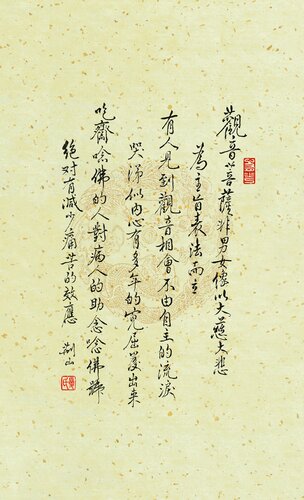 觀音菩薩非男女僅以大慈大悲
為主旨表法而立
有人見到觀音相會不由自主的流淚
哭涕似內心有多年的冤屈要出来
吃齋唸佛的人對病人的助念唸佛號
絕对有減少痛苦的效應